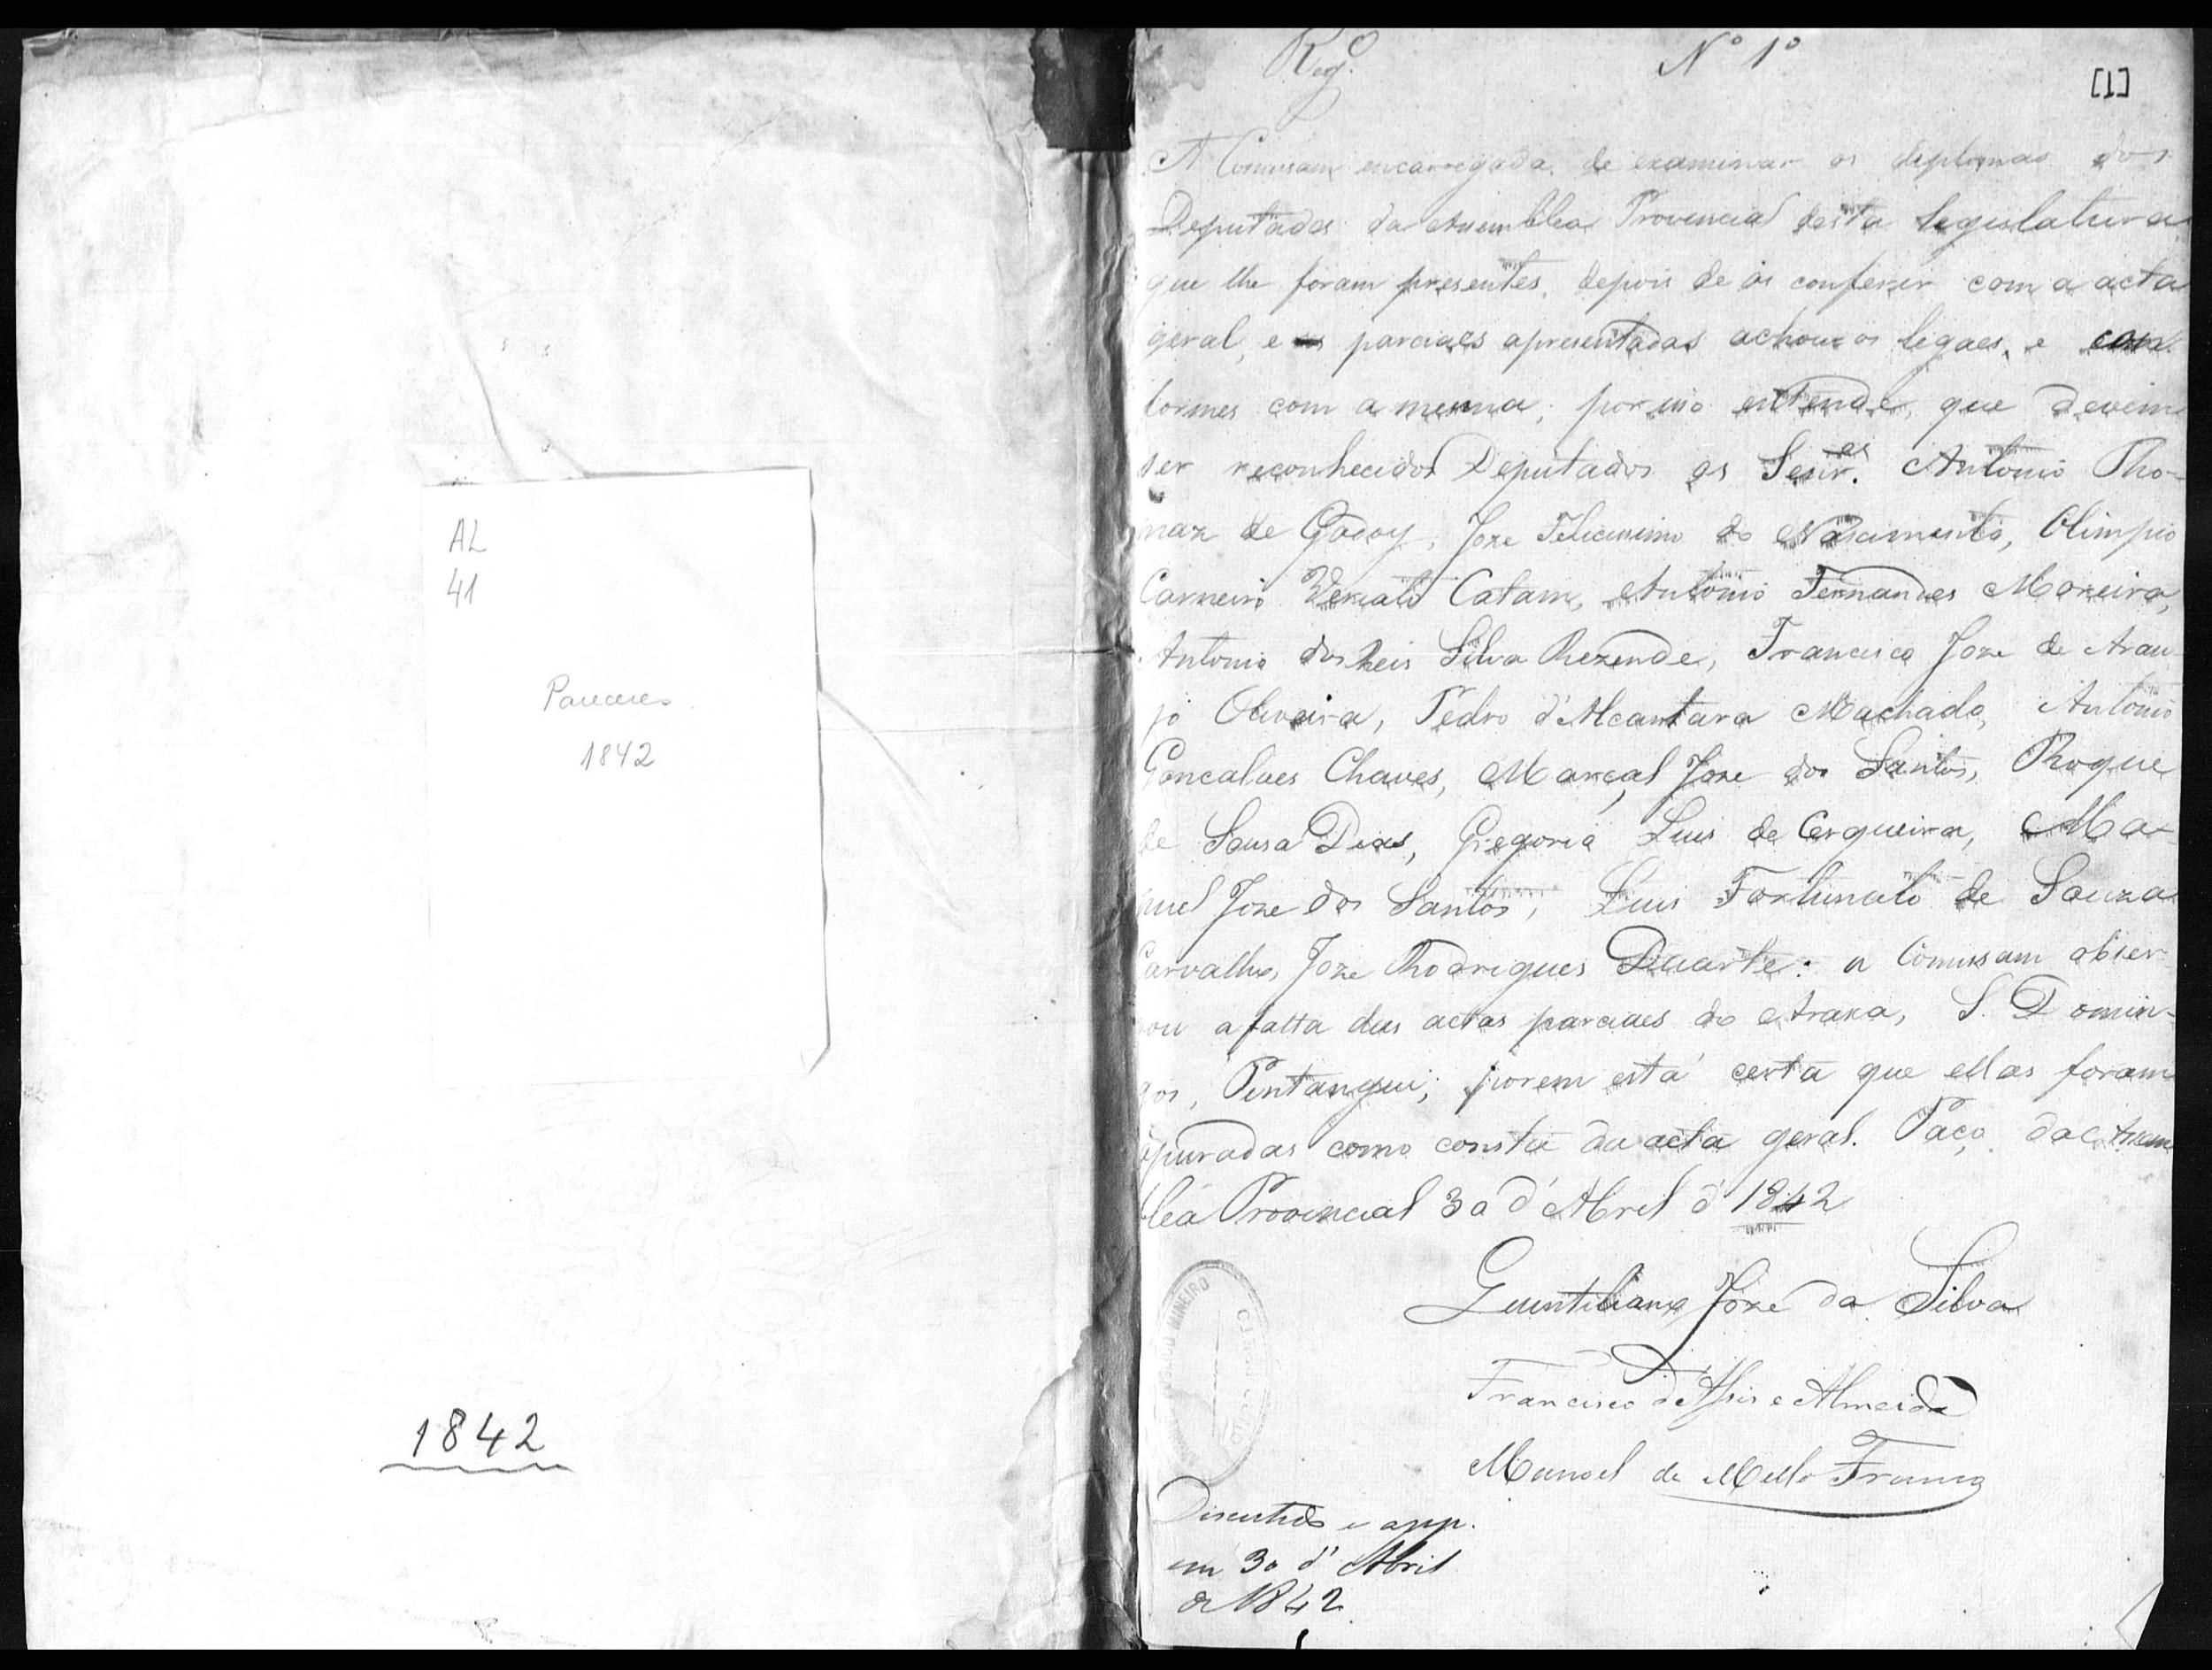 AL
41
Pareceres
1842
1842
Reg.º
Nº 1º
[1]
A Comissam encarregada de examinar os diplomas dos
Deputados da Assemblea Provincial desta legislatura
que lhe foram presentes, depois de os conferir com a acta
geral, e parciaes apresentadas achou os legaes, e con
formes com a mesma; por isso entende, que devem
ser reconhecidos Deputados os Senr.es Antonio Tho-
maz de Godoy, Joze Feliciano do Nascimento, Olimpio
Carneiro Viriato Catam, Antonio Fernandes Moreira,
Antonio dos Reis Silva Rezende, Francisco Joze de Arau
jo Oliveira, Pedro d'Alcantara Machado, Antonio
Goncalves Chaves, Marçal Joze dos Santos, Roque
de Sousa Dias, Gregorio Luis de Cerqueira, Ma-
nuel Joze dos Santos, Luis Fortunato de Souza
Carvalho, Joze Rodrigues Duarte: a Comissam obser
vou a falta das actas parciaes do Araxa, S. Domin-
gos, Pintangui; porem está certa que ellas foram
apuradas como consta da acta geral. Paço da Assem
blea Provincial 30 d'Abril d' 1842
Quintiliano Joze da Silva
Francisco d'Assis e Almeida
Manoel de Mello Franco
MINEIRO
Discutido e app.
em 30 d' Abril
de 1842